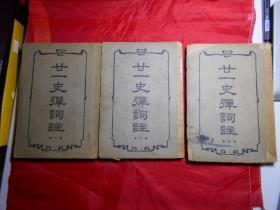 廿一史彈詞註
廿一史彈詞註
廿一史彈詞註